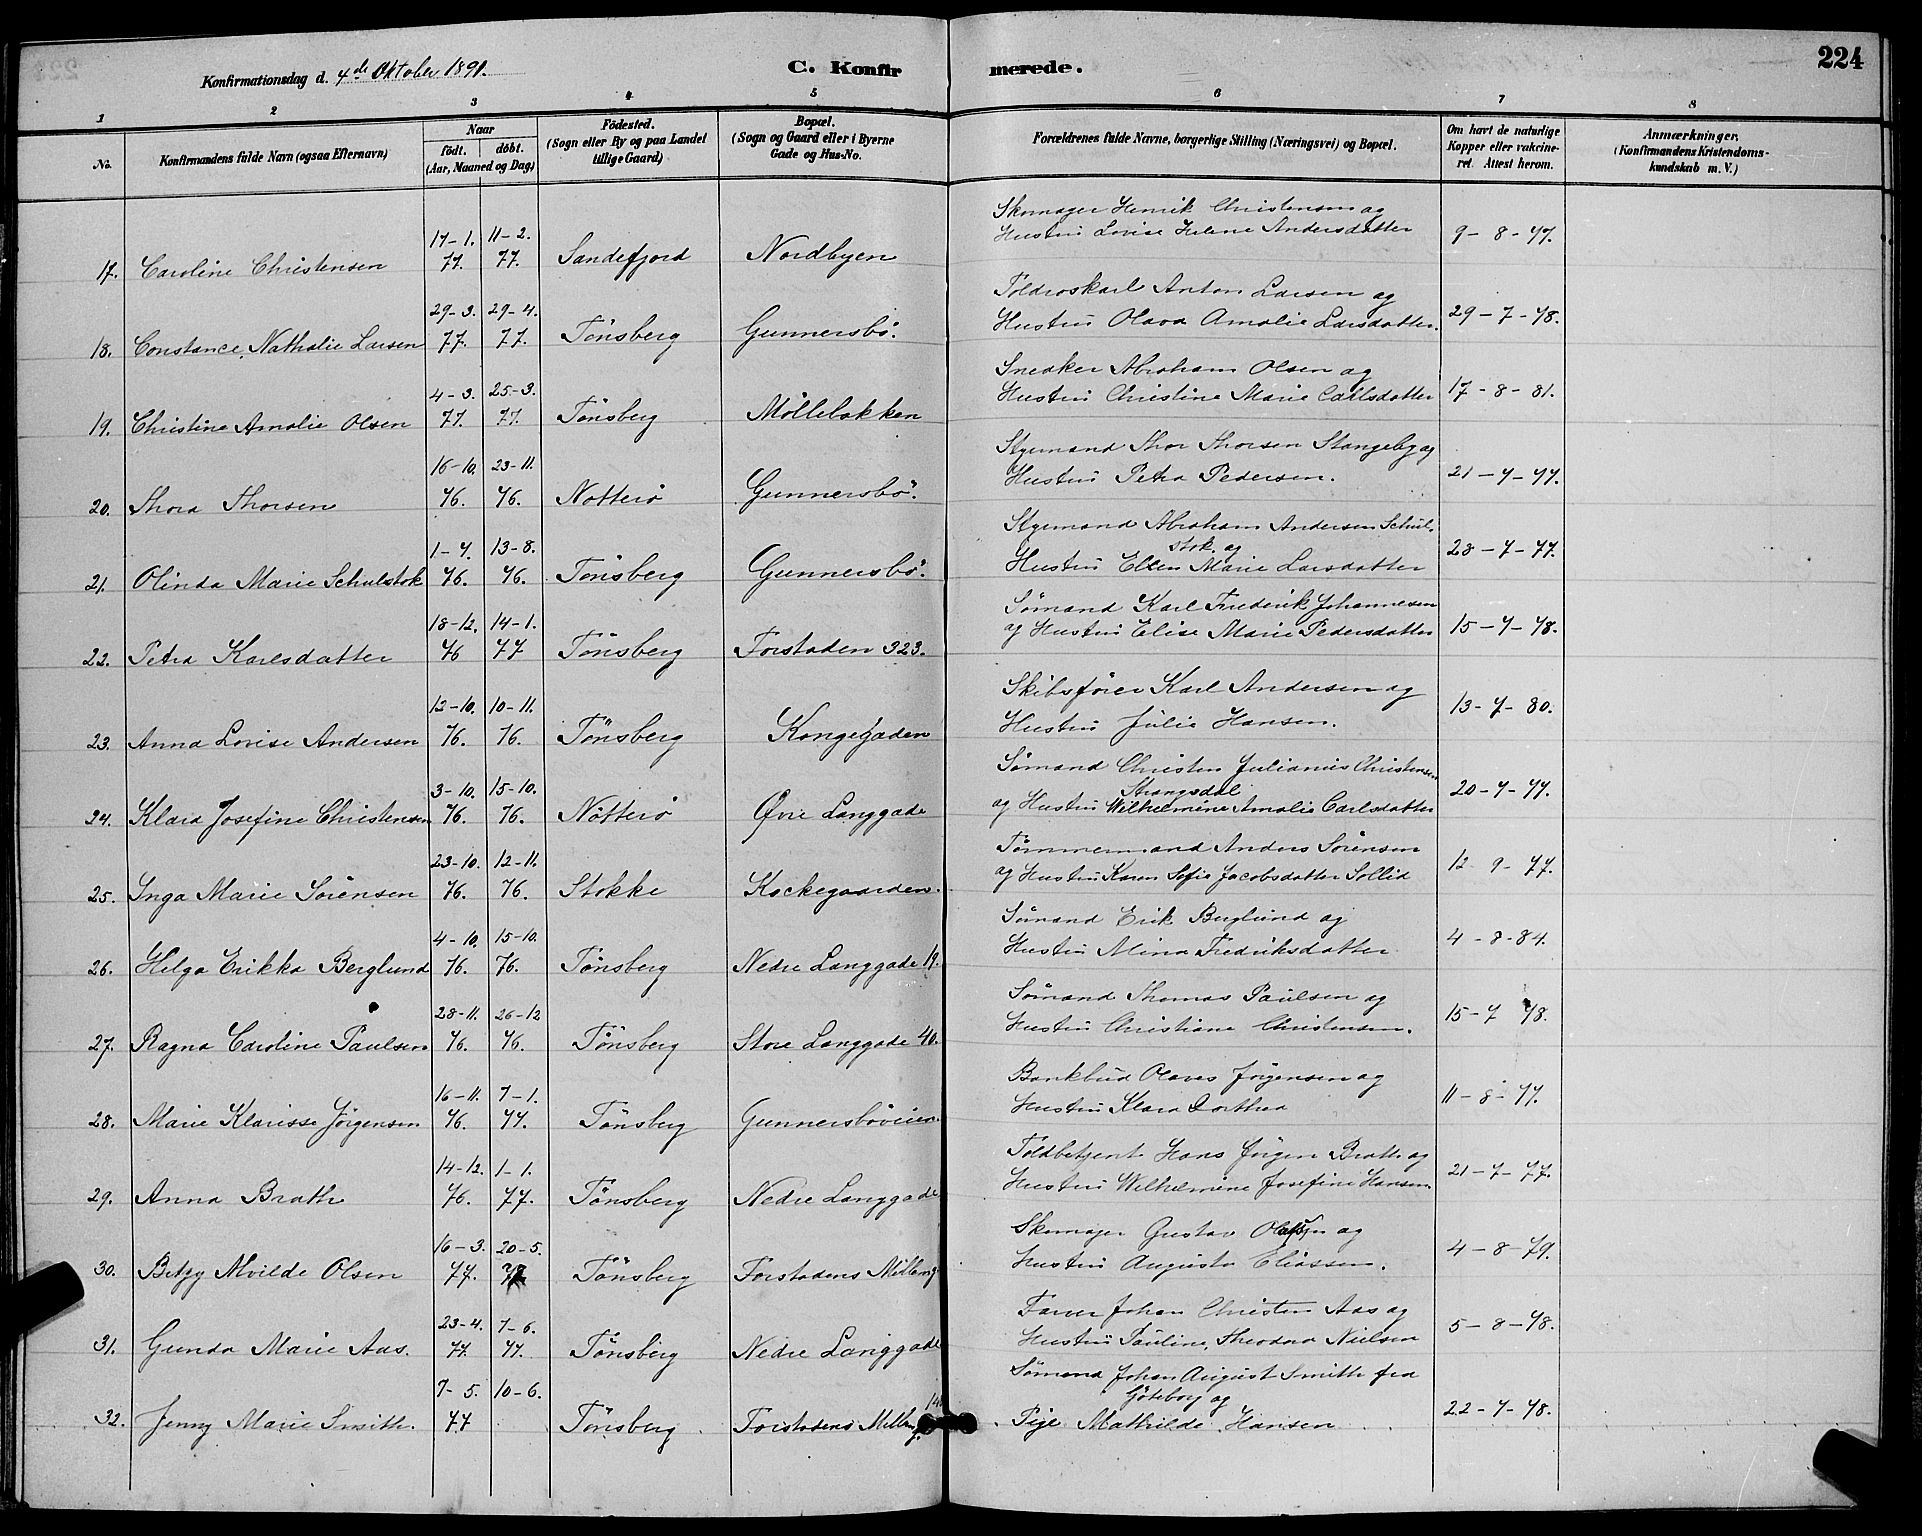 Konfirmationsdag d. 4de Oktober 1891.
C. Konfirmerede.
224
1 2 3 4 5 6 7 8
No.
Konfirmandens fulde Navn (ogsaa Efternavn)
Naar
født. døbt.
(Aar, Maaned og Dag)
Fødested.
(Sogn eller By og paa Landet
tillige Gaard)
Bopæl.
(Sogn og Gaard eller i Byerne
Gade og Hus-No.
Forældrenes fulde Navne, borgerlige Stilling (Næringsvei) og Bopæl.
Om havt de naturlige
Kopper eller vakcine-
ret. Attest herom.
Anmærkninger.
(Konfirmandens Kristendoms-
kundskab m. V.)
Skomager Henrik Christensen og
17-1. 11-2. Hustru Lovise Helene Andersdatter 9-8-77.
17. Caroline Christensen 77. 77. Sandefjord Nordbyen
29-3. 29-4. Toldroskarl Anton Larsen og
18. Constance Nathalie Larsen 77. 77. Tönsberg Gunnersbö. Hustru Olava Amalie Larsdatter. 29-7-78.
4-3. 25-3. Snedker Abraham Olsen og
Hustru Christine Marie Carlsdatter 17-8-81.
19. Christine Amalie Olsen 77. 77. Tönsberg Möllebakken
16-10. 23-11. Styrmand Thor Thorsen Stangeby og
20. Thora Thorsen 76. 76. Nötterö Gunnersbö. Hustru Petra Pedersen. 21-7-77.
1-7. 13-8. Styrmand Abraham Andersen Schul-
stok. og
21. Olinda Marie Schulstok 76. 76. Tönsberg Gunnersbö. Hustru Ellen Marie Larsdatter 28-7-77.
18-12. 14-1. Sömand Karl Frederik Johannesen
og Hustru Elise Marie Pedersdatter 15-7-78.
22. Petra Karlsdatter 76 77 Tönsberg Forstaden 323.
12-10. 10-11. Skibsförer Karl Andersen og
23. Anna Lovise Andersen 76. 76. Tönsberg Kongegaden Hustru Julie Hansen. 13-7-80.
3-10. 15-10. Sömand Christen Julianus Christensen
Strangsdal
24. Klara Josefine Christensen 76. 76. Nötterö Øvre Langgade og Hustru Wilhelmine Amalie Carlsdatter 20-7-77.
23-10. 12-11. Tömmermand Anders Sörensen
25. Inga Marie Sörensen 76. 76. Stokke Kockegaarden. og Hustru Karen Sofie Jacobsdatter Sollid 12-9-77.
4-10. 15-10. Sömand Erik Berglund og
26. Helga Erikka Berglund 76. 76. Tönsberg Nedre Langgade 19. Hustru Mina Fredriksdatter 4-8-84.
28-11. 26-12 Sömand Thomas Paulsen og
27. Ragna Caroline Paulsen 76. 76. Tönsberg Store Langgade 40. Hustru Christiane Christensen. 15-7 78.
16-11. 7-1. Bankbud Olaves Jörgensen og
28. Marie Klarisse Jörgensen 76. 77. Tönsberg Gunnersböveien. Hustru Klara Dorthea 11-8-77.
14-12. 1-1. Toldbetjent Hans Jörgen Brath og
29. Anna Brath 76. 77. Tönsberg Nedre Langgade Hustru Wilhelmine Josefine Hansen. 21-7-77.
16-3. 20-5. Skomager Gustav Olsen og
30. Betzy Alvilde Olsen 77. 77 Tönsberg Forstadens Mellemg. Hustru Augusta Eliassen. 4-8-79.
23-4. 7-6. Farver Johan Christen Aas og
31. Gunda Marie Aas. 77. 77. Tönsberg Nedre Langgade Hustru Pauline Theodora Nielsen 5-8-78.
7-5. 10-6. Sömand Johan August Smith fra
Göteborg og
32. Jenny Marie Smith. 77 Tönsberg Forstadens Mellemg. Pige Mathilde Hansen 22-7-78.